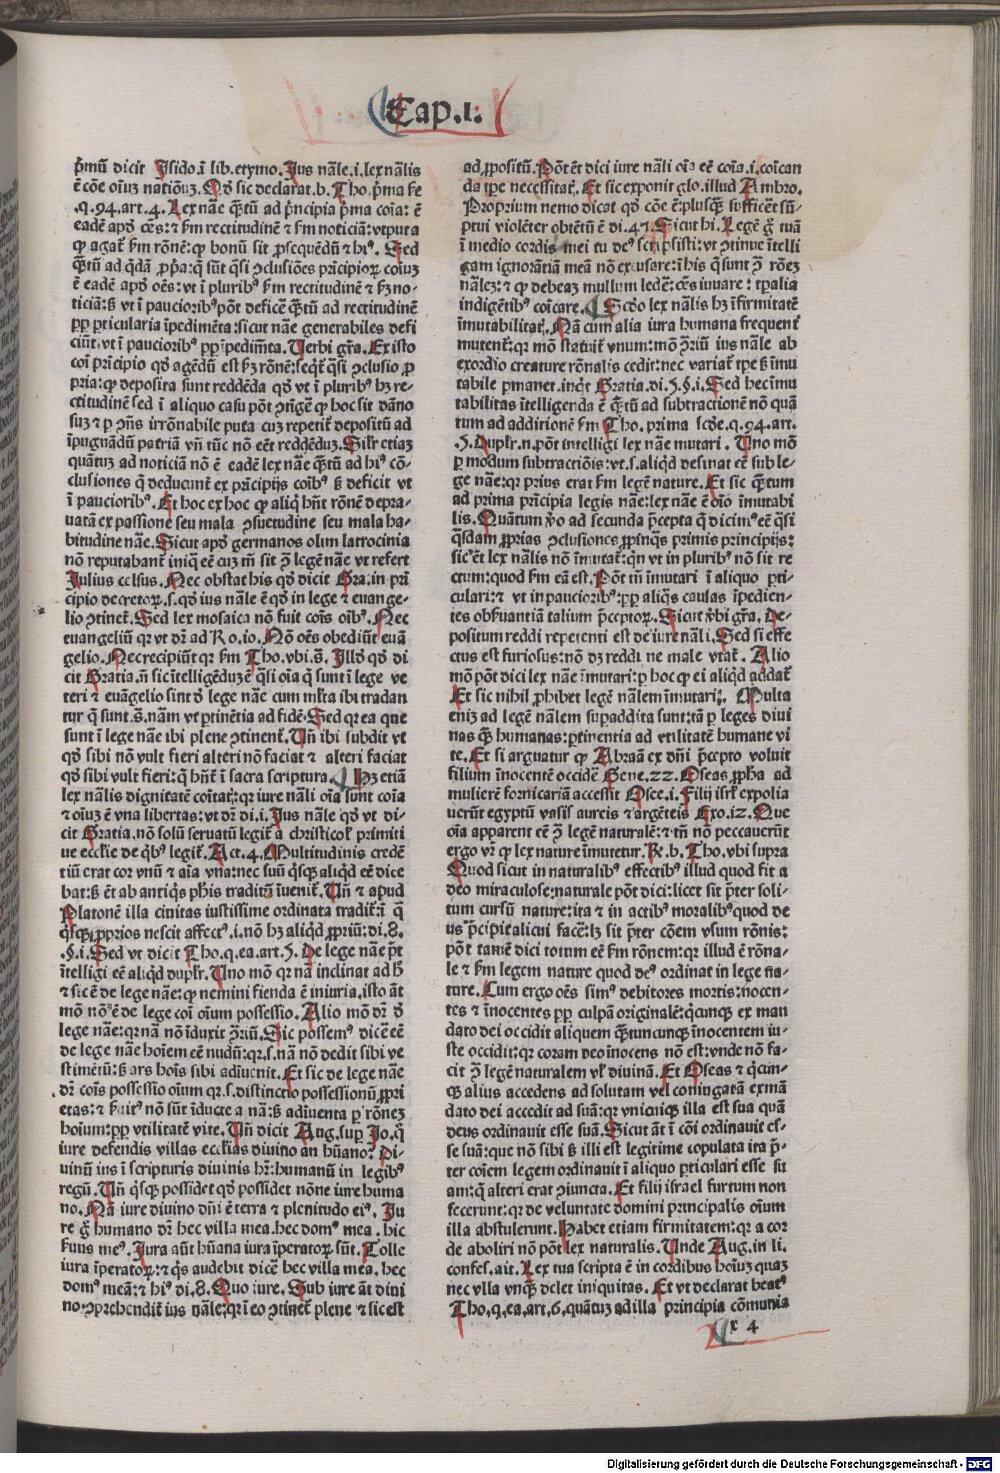 Cap.i.
p̄mū dicit Isido.ī lib.etymo. Ius nāle.i.lex nālis
ē cōe oīuz natiōuz. Qd̓ sic declarat.b.Tho.p̄ma se
.q.94.art.4. Lex nāe q̄tū ad p̄ncipia p̄ma coīa: ē
eadē apd̓ oēs: ⁊ s̄m rectitudinē ⁊ s̄m noticiā: vtputa
ꝙ agat̄ s̄m rōnē: ꝙ bonū sit ꝓsequēdū ⁊ hiꝰ. Sed
q̄tū ad q̄dā ꝓp̄a: q̄ sūt q̄si ꝯclusiões pricipioꝝ coiuz
ē eadē apd̓ oēs: vt ī pluribꝰ s̄m rectitudinē ⁊ s̄z no-
ticiā: ß vt ī pauciorib̓ꝰ pōt deficē q̄tū ad rectitudinē
ꝑp ꝑticularia īpedimēta: sicut nāe generabiles defi
ciūt. vt ī pauciorib̓ꝰ ꝑp īpedim̄ta. Verbi gr̄a. Ex isto
coī pricipio qd̓ agēdū est s̄z rōnē: seq̄t̄ q̄si ꝯclusio ꝓ
pria: ꝙ deposita sunt reddēda qd̓ vt ī pluribꝰ hz re-
ctitudinē sed ī aliquo casu pōt ꝯtīgē ꝙ hoc sit dāno
suz ⁊ ꝑ ꝯn̄s irrōnabile puta cuz repetit̄ depositū ad
īpugnādū patriā vn̄ tūc nō eēt reddēduz. Sil̓r etiaz
quātuz ad noticiā nō ē eadē lex nāe q̄tū ad hiꝰ cō-
clusiones q̄ deducunt̄ ex prīcipijs coīb̓ꝰ ß deficit vt
ī pauciorib̓ꝰ. Et hoc ex hoc ꝙ aliq̄ hn̄t rōnē depra-
uatā ex passione seu mala ꝯsuetudine seu mala ha-
bitudine nāe. Sicut apd̓ germanos olim latrocinia
nō reputabant̄ iniq̄ eē cuz tn̄ sit ꝯ̄ legē nāe vt refert
Julius celsus. Nec obstat his qd̓ dicit Gra: in pri
cipio decretoꝝ.s.qd̓ ius nāle ē qd̓ in lege ⁊ euange-
lio ꝯtinet̄. Sed lex mosaica nō fuit coīs oīb̓ꝰ. Nec
euangeliū qr vt dr̄ ad Ro.io. Nō oēs obediūt euā
gelio. Nec recipiūt qr s̄m Tho.vbi.s̄. Illd̓ qd̓ di
cit Gratia. n̄ sic ītelligēduz ē q̄si oīa q̄ sunt ī lege ve
teri ⁊ euāgelio sint d̓ lege nāe cum ml̓ta ibi tradan
tur q̄ sunt.s̄.nām vt ꝑtinētia ad fidē. Sed qr ea que
sunt ī lege nāe ibi plene ꝯtinent̄. Vn̄ ibi subdit vt
qd̓ sibi nō vult fieri alteri nō faciat ⁊ alteri faciat
qd̓ sibi vult fieri: q̄ hn̄t ī sacra scriptura. Hz etiā
lex nālis dignitatē coītat̄: qr iure nāli oīa sunt coīa
⁊ oīuz ē vna libertas: vt dr̄ di.i. Ius nāle qd̓ vt di-
cit Gratia.nō solū seruatū legit̄ a christicoł primiti
ue ecclīe de q̄b̓ꝰ legit̄. Act.4. Multitudinis credē
tiū erat cor vnū ⁊ aīa vna: nec suū q̄sꝗ aliqd̓ eē dice
bat: ß ēt ab antiq̄s ph̄is traditū īuenit̄. Vn̄ ⁊ apud
Platonē illa ciuitas iustissime ordinata tradit̄: ī q̄
q̄sꝗ ꝓprios nescit affectꝰ.i.nō hz aliqd̓ ꝓpriū: di.8.
.§.i. Sed vt dicit Tho.q.ea.art.5. De lege nāe p̄t
ītelligi eē aliqd̓ dupl̓r. Vno mō qr nā inclinat ad h̄
⁊ sic ē de lege nāe: ꝙ nemini fienda ē iniuria. isto āt
mō nō ē de lege coī oīum possessio. Alio mō dr̄ d̓
lege nāe: qr nā nō īduxit ꝯriū. Sic possemꝰ dicē eē
de lege nāe hoīem eē nudū: qr.s.nā nō dedit sibi ve
stimētū: ß ars hoīs sibi adīuenit. Et sic de lege nāe
dr̄ coīs possessio oīum qr.s.distinctio possessionū ꝓpri
etas: ⁊ s̄uitꝰ nō sūt īducte a nā: ß adīuenta ꝑ rōnez
hoīum: ꝑp vtilitatē vite. Vn̄ dicit Aug.sup̄ Jo.q̄
iure defendis villas eccłias diuino an hūano: Di-
uinū ius ī scripturis diuinis hr̄: humanū in legib̓ꝰ
regū. Vn̄ q̄sꝗ possidet qd̓ possidet nōne iure huma
no. Nā iure diuino dn̄i ē terra ⁊ plenitudo eiꝰ. Iu
re g̊ humano dr̄ hec villa mea.hec domꝰ mea. hic
s̄uus meꝰ. Iura aūt hūana iura īperatoꝝ sūt. Tolle
iura īperatoꝝ: ⁊ q̄s audebit dicē hec villa mea. hec
domꝰ meā: ⁊ hiꝰ di.8. Quo iure. Sub iure āt diui
no ꝯprehendit̄ ius nāle: qr ī eo ꝯtinet̄ plene ⁊ sic est
ad ꝓpositū. Pōt ēt dici iure nāli oīa eē coīa.i.coīcan
da tp̄e necessitat̄. Et sic exponit glo.illud Ambro.
Proprium nemo dicat qd̓ cōe ē: plusꝗ sufficēt sū-
ptui violēter obtētū ē di.47. Sicut hi. Legē g̊ tuā
ī medio cordis mei tu deꝰ scripsisti: vt ꝯtinue ītelli
gam ignorātiā meā nō excusare: ī his q̄ sunt ꝯ̄ rōez
nālez: ⁊ ꝙ debeaz nullum ledē: cēs iuuare: tp̄alia
indigētib̓ꝰ coīcare. Scd̓o lex nālis hz firmitatē
īmutabilitat̄. Nā cum alia iura humana frequent̄
mutent̄: qr mō statuit̄ vnum: mō ꝯriū ius nāle ab
exordio creature rōnalis cedit: nec variat̄ tp̄e ß īmu
tabile ꝑmanet. inq̄t Gratia.di.5.§.i. Sed hec īmu
tabilitas ītelligenda ē q̄tū ad subtractionē nō quā
tum ad additionē s̄m Tho.prima scd̓e.q.94.art.
.5. Dupl̓r.n.pōt intelligi lex nāe mutari. Vno mō
ꝑ modum subtractiōis: vt.s.aliqd̓ desinat eē sub le-
ge nāe: qr prius erat s̄m legē nature. Et sic q̄tum
ad prima prīcipia legis nāe: lex nāe ē oīo īmutabi
lis. Quātum v̊o ad secunda p̄cepta q̄ dicimꝰ eē q̄si
q̄sdam ꝓprias ꝯclusiones ꝓpinq̄s primis principijs:
sic ēt lex nālis nō īmutat̄: qn̄ vt in pluribꝰ nō sit re
ctum: quod s̄m eā est. Pōt tn̄ īmutari ī aliquo ꝑti-
culari: ⁊ vt in pauciorib̓ꝰ: ꝑp aliq̄s causas īpedien-
tes obs̄uantiā talium p̄ceptoꝝ. Sicut v̊bi gr̄a. De-
positum reddi repetenti est de iure nāli. Sed si effe
ctus est furiosus: nō dz reddi ne male vtat̄. Alio
mō pōt dici lex nāe īmutari: ꝑ hoc ꝙ ei aliqd̓ addat̄
Et sic nihil ꝓhibet legē nālem īmutari. Multa
enīz ad legē nālem suꝑaddita sunt: tā ꝑ leges diui
nas ꝗ humanas: ꝑtinentia ad vtilitatē humane vi
te. Et si arguatur ꝙ Abraā ex dn̄i p̄cepto voluit
filium īnocentē occidē Gene.22. Oseas ꝓph̄a ad
mulierē fornicariā accessit Osee.i. Filij isrl̓ expolia
uerūt egyptū vasis aureis ⁊ argēteis Exo.12. Que
oīa apparent eē ꝯ̄ legē naturalē: ⁊ tn̄ nō peccauerūt
ergo vr̄ ꝙ lex nature īmutetur. R̄.b.Tho.vbi supra
Quod sicut in naturalibꝰ effectibꝰ illud quod fit a
deo miraculose: naturale pōt dici: licet sit p̄ter soli-
tum cursū nature: ita ⁊ in actibꝰ moralibꝰ quod de
us p̄cipit alicui facē: lz sit p̄ter cōem vsum rōnis:
pōt tamē dici totum eē s̄m rōnem: qr illud ē rōna-
le ⁊ s̄m legem nature quod deꝰ ordinat in lege na-
ture. Cum ergo oēs simꝰ debitores mortis: nocen-
tes ⁊ īnocentes ꝑp culpā originalē: q̄cunꝗ ex man
dato dei occidit aliquem q̄tuncunꝗ īnocentem iu-
ste occidit: qr coram deo īnocens nō est: vnde nō fa-
cit ꝯ̄ legē naturalem vl̓ diuinā. Et Oseas ⁊ q̄cūn-
ꝗ alius accedens ad solutam vel coniugatā ex mā
dato dei accedit ad suā: qr vnicuiꝗ illa est sua quā
deus ordinauit esse suā. Sicut āt ī cōi ordinauit es-
se suā: que nō sibi ß illi est legitime copulata ita p̄-
ter coīem legem ordinauit ī aliquo ꝑticulari esse su
am: q̄ alteri erat ꝯiuncta. Et filij israel furtum non
fecerunt: qr de voluntate domini principalis oīum
illa abstulerunt. Habet etiam firmitatem: qr a cor
de aboliri nō pōt lex naturalis. Unde Aug.in li.
confes.ait. Lex tua scripta ē in cordibus hoīuz quaz
nec vlla vnꝗ delet iniquitas. Et vt declarat beatꝰ
Tho.q.ea.art.6.quātuz ad illa principia cōmunia
x 4
Digitalisierung gefördert durch die Deutsche Forschungsgemeinschaft - DFG